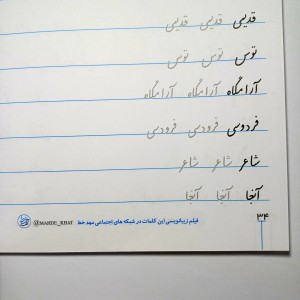 قدیمی قدیمی قدیمی
توس توس توس
آرامگاه آرامگاه آرامگاه
فردوسی فردوسی فردوسی
شاعر شاعر شاعر
آنجا آنجا آنجا
فیلم زیبانویسی این کلمات در شبکه های اجتماعی مهد خط @MAHDE_KHAT
۳۴